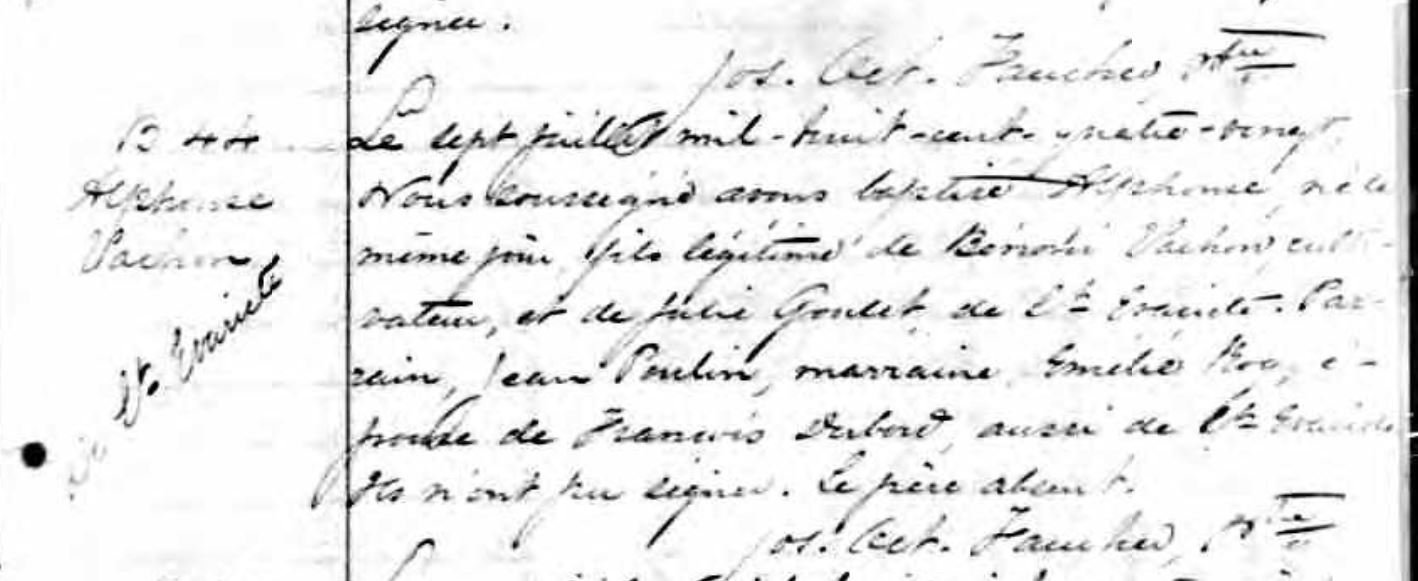 signer.
Jos. Oct. Faucher, Ptre
B 44
Alphonse
Vachon
St. Evariste
Le sept juillet mil-huit-cent-quatre-vingt,
Nous soussigné avons baptisé Alphonse, né le
même jour, fils légitime de Bénoni Vachon, culti-
vateur, et de Julie Goulet, de St Evariste. Par-
rain, Jean Poulin, marraine, Emélie Roy, é-
pouse de Francois Dubord, aussi de St Evariste
Ils n'ont pu signer. Le père absent.
Jos. Oct. Faucher, Ptre